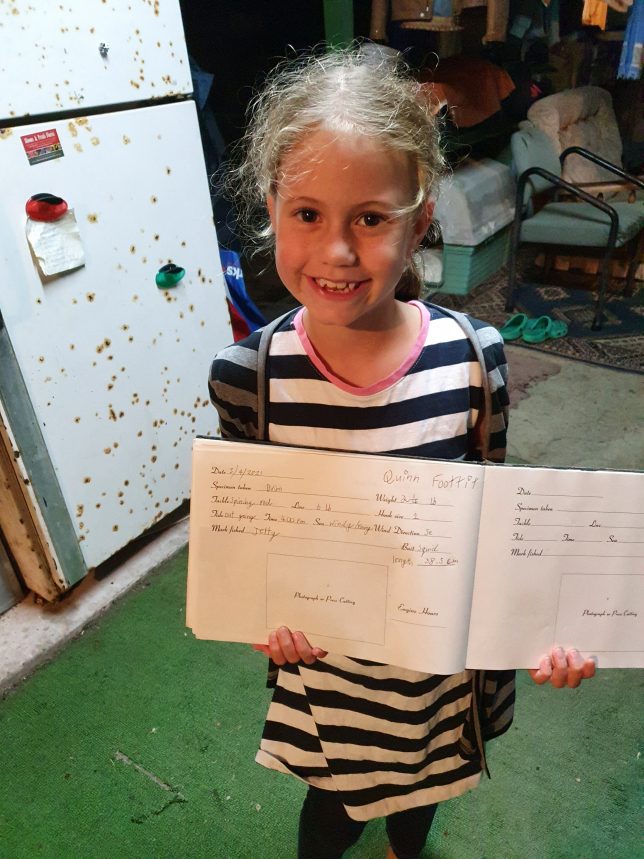 Date 5/4/2021 Quinn Foottit
Specimen taken Brim Weight 2 1/2 lb
Tackle Spining rod Line 6 lb Hook size 1
Tide out going Time 4:00 Pm Sea Windy Wind Direction Se
Mark fished Jetty Bait Squid
length 38.5 cm
Photograph or Press Cutting
Engine Hours
Date
Specimen taken
Tackle Line
Tide Time Sea
Mark fished
Photograph or Press Cutting